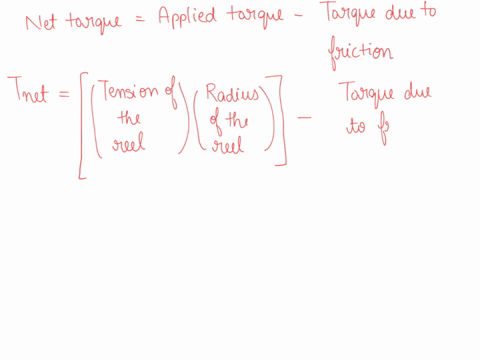 Net tarque = Applied tarque - Tarque due to
friction
Tnet = [(Tension of the reel)(Radius of the reel)] - Tarque due
to f